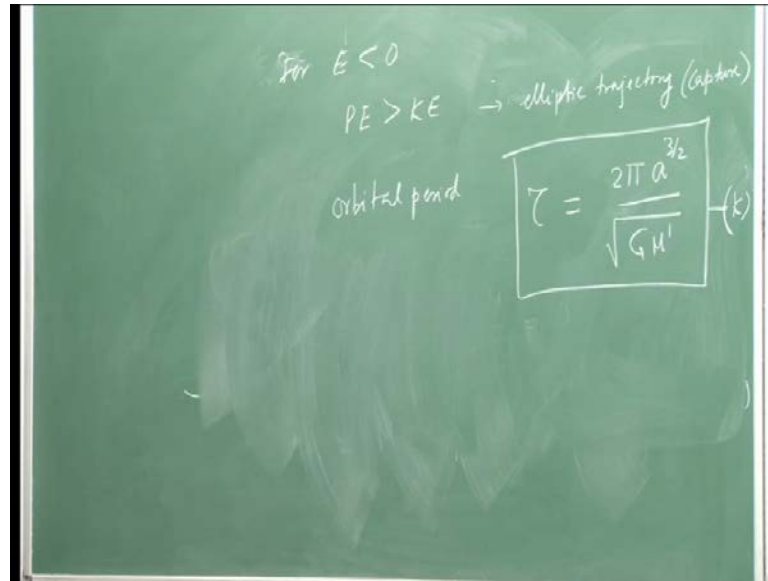 For E < 0
PE > KE → elliptic trajectory (capture)
orbital period τ = 2π a^3/2 / √GM' —(k)